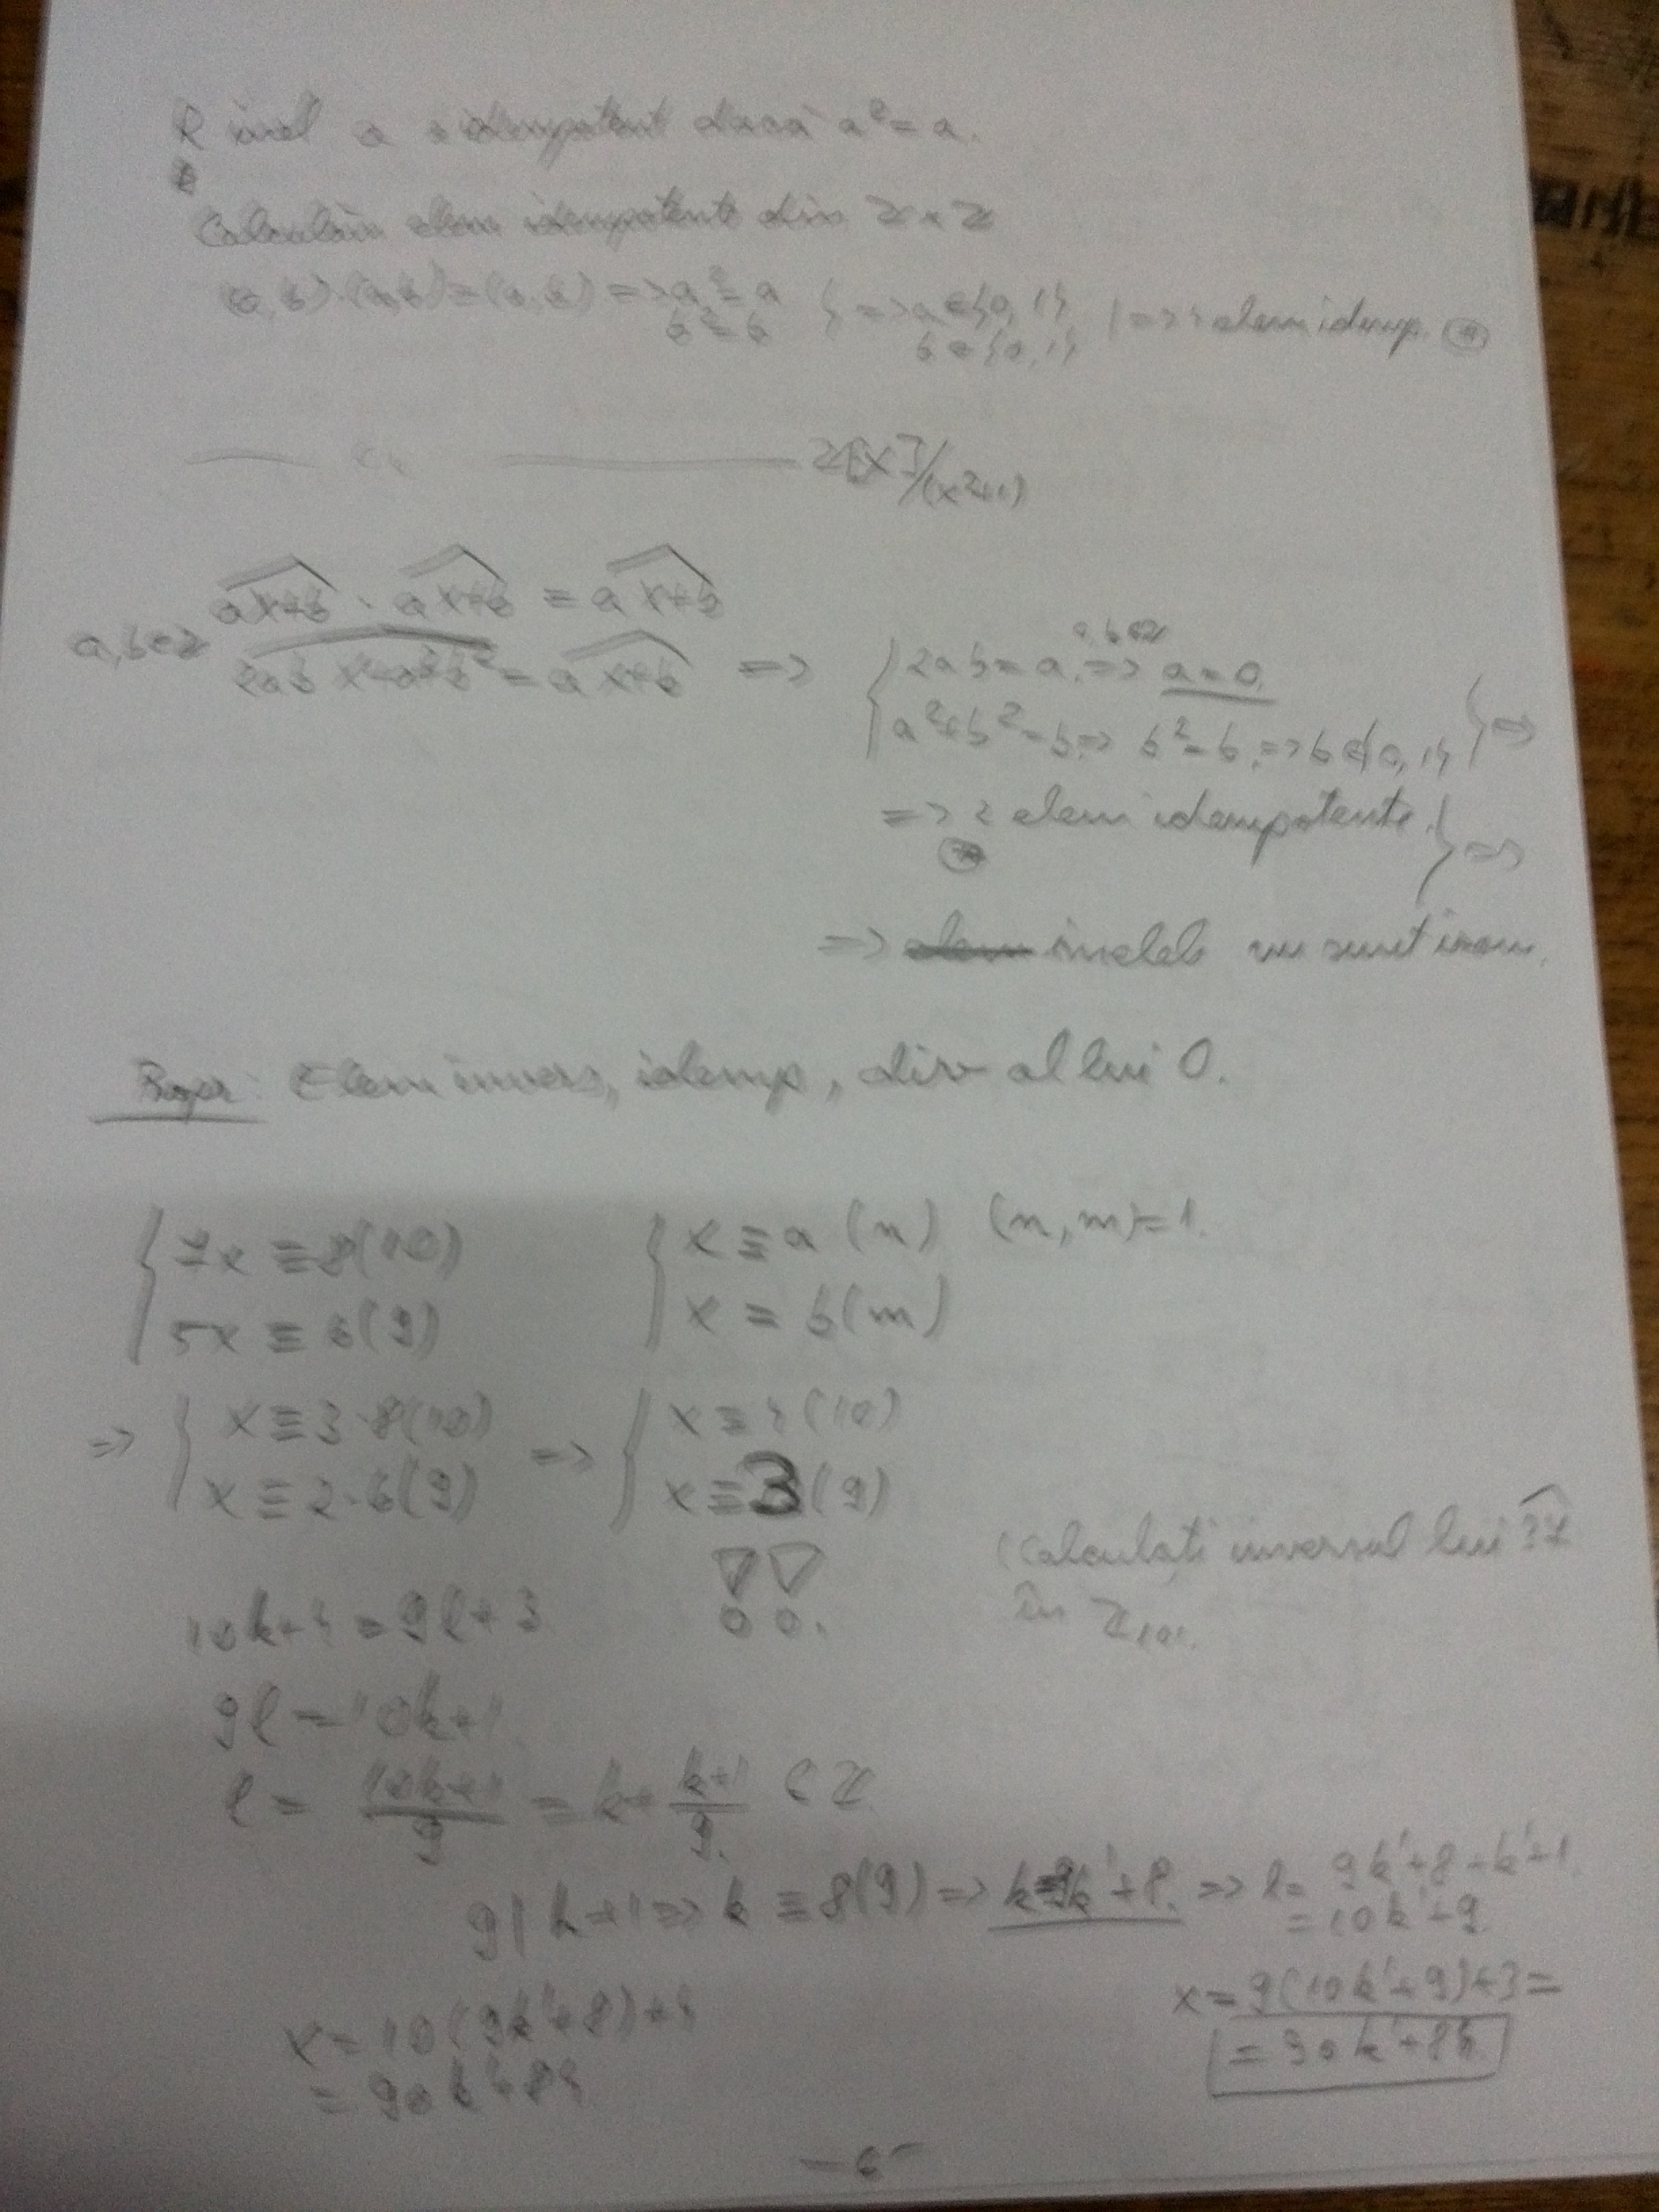 R inel a idempotent dacă a² = a.
Calculăm elem idempotente din Z × Z
(a,b)·(a,b) = (a,b) => a² = a } => a ∈ {0,1} | => 4 elem idemp. (*)
b² = b b ∈ {0,1}
—— " —— Z[X]/(x²+1)
a,b∈Z ax+b · ax+b = ax+b
2abx - a²+b² = ax+b => { 2ab = a => a = 0 a,b∈Z
-a²+b² = b => b² = b => b ∈ {0,1} } =>
=> 2 elem idempotente } =>
(*)
=> inelele nu sunt izom.
Elem invers, idemp, div al lui 0.
{ 7x ≡ 8(10) { x ≡ a (n) (n,m)=1.
5x ≡ 6(9) x ≡ b(m)
=> { x ≡ 3·8(10) => { x ≡ 4(10)
x ≡ 2·6(9) x ≡ 3(9)
(Calculați inversul lui 37
în Z101.
10k+4 = 9l+3
9l = 10k+1
l = (10k+1)/9 = k + (k+1)/9 ∈ Z
9 | k+1 => k ≡ 8(9) => k=9k'+8. => l = 9k'+8+k'+1
= 10k'+9
x = 10(9k'+8)+4 x = 9(10k'+9)+3 =
= 90k'+84 = 90k'+84
-6-